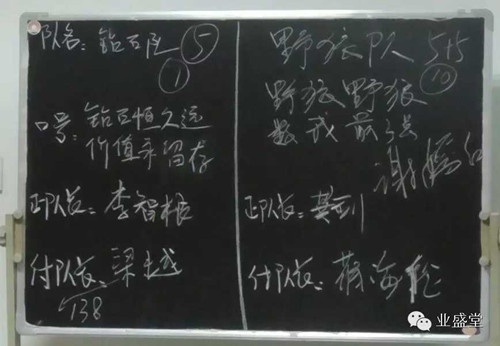 队名：钻石队 5
1
口号：钻石恒久远
价值永留存
正队长：李智
付队长：梁越
738
野狼队 5+5
10
野狼野狼
数我最强
正队长：
付队长：
业盛堂